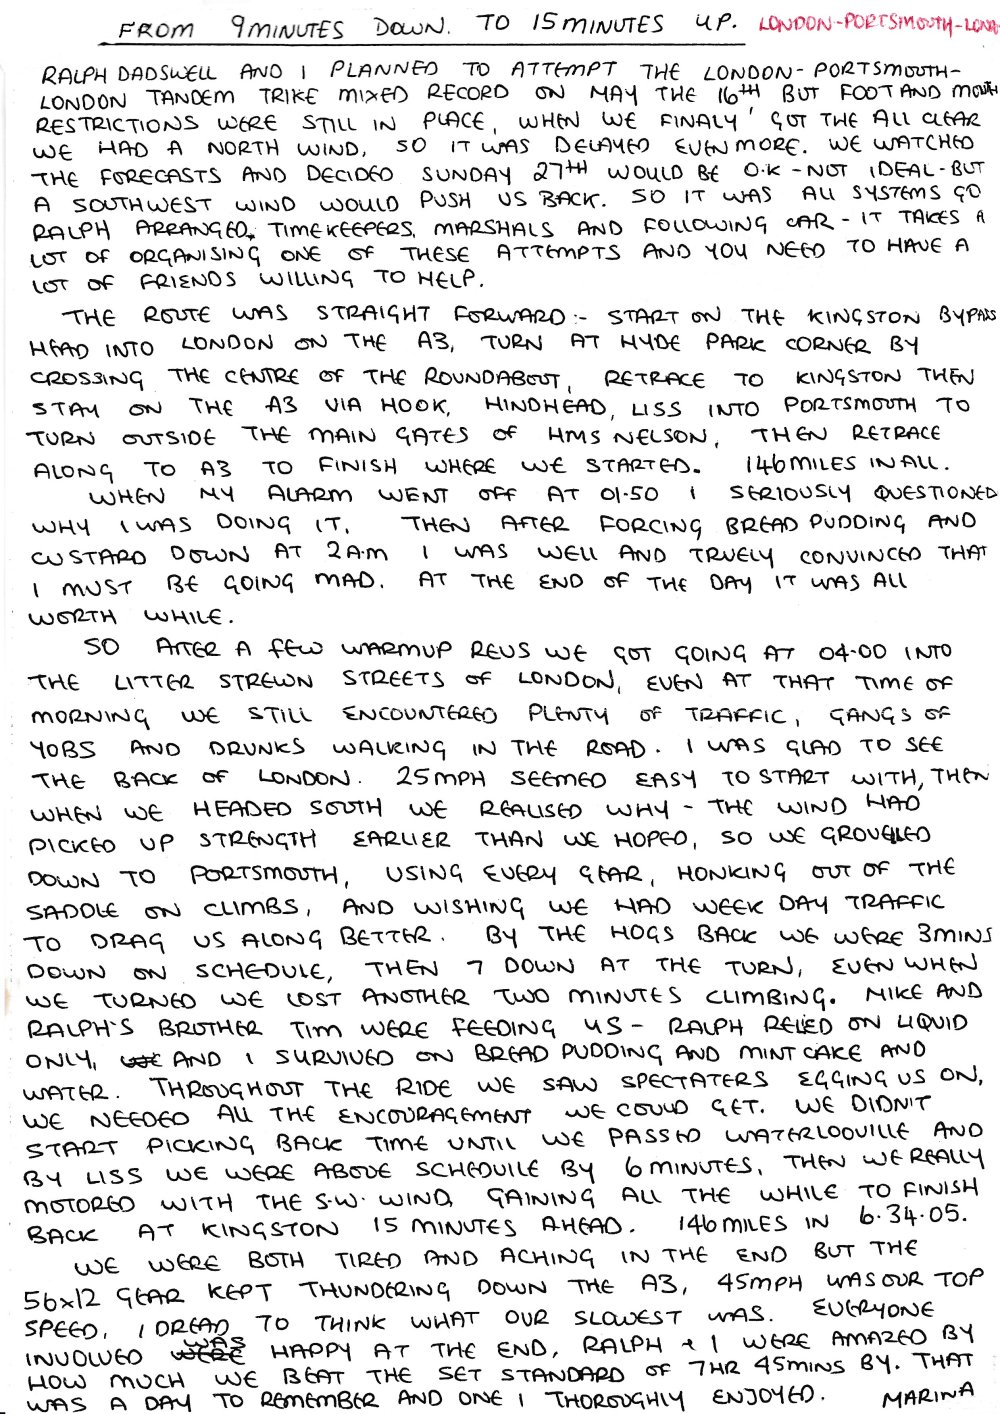 FROM 9 MINUTES DOWN. TO 15 MINUTES UP. LONDON-PORTSMOUTH-LOND
RALPH DADSWELL AND I PLANNED TO ATTEMPT THE LONDON-PORTSMOUTH-
LONDON TANDEM TRIKE MIXED RECORD ON MAY THE 16TH BUT FOOT AND MOUTH
RESTRICTIONS WERE STILL IN PLACE, WHEN WE FINALY 'GOT THE ALL CLEAR
WE HAD A NORTH WIND, SO IT WAS DELAYED EVEN MORE. WE WATCHED
THE FORECASTS AND DECIDED SUNDAY 27TH WOULD BE O.K - NOT IDEAL - BUT
A SOUTHWEST WIND WOULD PUSH US BACK. SO IT WAS ALL SYSTEMS GO
RALPH ARRANGED, TIMEKEEPERS, MARSHALS AND FOLLOWING CAR - IT TAKES A
LOT OF ORGANISING ONE OF THESE ATTEMPTS AND YOU NEED TO HAVE A
LOT OF FRIENDS WILLING TO HELP.
THE ROUTE WAS STRAIGHT FORWARD:- START ON THE KINGSTON BYPASS
HEAD INTO LONDON ON THE A3, TURN AT HYDE PARK CORNER BY
CROSSING THE CENTRE OF THE ROUNDABOUT, RETRACE TO KINGSTON THEN
STAY ON THE A3 VIA HOOK, HINDHEAD, LISS INTO PORTSMOUTH TO
TURN OUTSIDE THE MAIN GATES OF HMS NELSON, THEN RETRACE
ALONG TO A3 TO FINISH WHERE WE STARTED. 146 MILES IN ALL.
WHEN MY ALARM WENT OFF AT 01.50 I SERIOUSLY QUESTIONED
WHY I WAS DOING IT. THEN AFTER FORCING BREAD PUDDING AND
CUSTARD DOWN AT 2A.M I WAS WELL AND TRUELY CONVINCED THAT
I MUST BE GOING MAD. AT THE END OF THE DAY IT WAS ALL
WORTH WHILE.
SO AFTER A FEW WARMUP REVS WE GOT GOING AT 04.00 INTO
THE LITTER STREWN STREETS OF LONDON, EVEN AT THAT TIME OF
MORNING WE STILL ENCOUNTERED PLENTY OF TRAFFIC, GANGS OF
YOBS AND DRUNKS WALKING IN THE ROAD. I WAS GLAD TO SEE
THE BACK OF LONDON. 25MPH SEEMED EASY TO START WITH, THEN
WHEN WE HEADED SOUTH WE REALISED WHY - THE WIND HAD
PICKED UP STRENGTH EARLIER THAN WE HOPED, SO WE GROVELLED
DOWN TO PORTSMOUTH, USING EVERY GEAR, HONKING OUT OF THE
SADDLE ON CLIMBS, AND WISHING WE HAD WEEK DAY TRAFFIC
TO DRAG US ALONG BETTER. BY THE HOGS BACK WE WERE 3MINS
DOWN ON SCHEDULE, THEN 7 DOWN AT THE TURN, EVEN WHEN
WE TURNED WE LOST ANOTHER TWO MINUTES CLIMBING. MIKE AND
RALPH'S BROTHER TIM WERE FEEDING US - RALPH RELIED ON LIQUID
ONLY, AND I SURVIVED ON BREAD PUDDING AND MINT CAKE AND
WATER. THROUGHOUT THE RIDE WE SAW SPECTATERS EGGING US ON,
WE NEEDED ALL THE ENCOURAGEMENT WE COULD GET. WE DIDN'T
START PICKING BACK TIME UNTIL WE PASSED WATERLOOVILLE AND
BY LISS WE WERE ABOVE SCHEDUILE BY 6 MINUTES, THEN WE REALLY
MOTORED WITH THE S.W. WIND, GAINING ALL THE WHILE TO FINISH
BACK AT KINGSTON 15 MINUTES AHEAD. 146 MILES IN 6.34.05.
WE WERE BOTH TIRED AND ACHING IN THE END BUT THE
56x12 GEAR KEPT THUNDERING DOWN THE A3, 45MPH WAS OUR TOP
SPEED, I DREAD TO THINK WHAT OUR SLOWEST WAS. EVERYONE
INVOLVED WAS HAPPY AT THE END, RALPH + I WERE AMAZED BY
HOW MUCH WE BEAT THE SET STANDARD OF 7HR 45MINS BY. THAT
WAS A DAY TO REMEMBER AND ONE I THOROUGHLY ENJOYED. MARINA